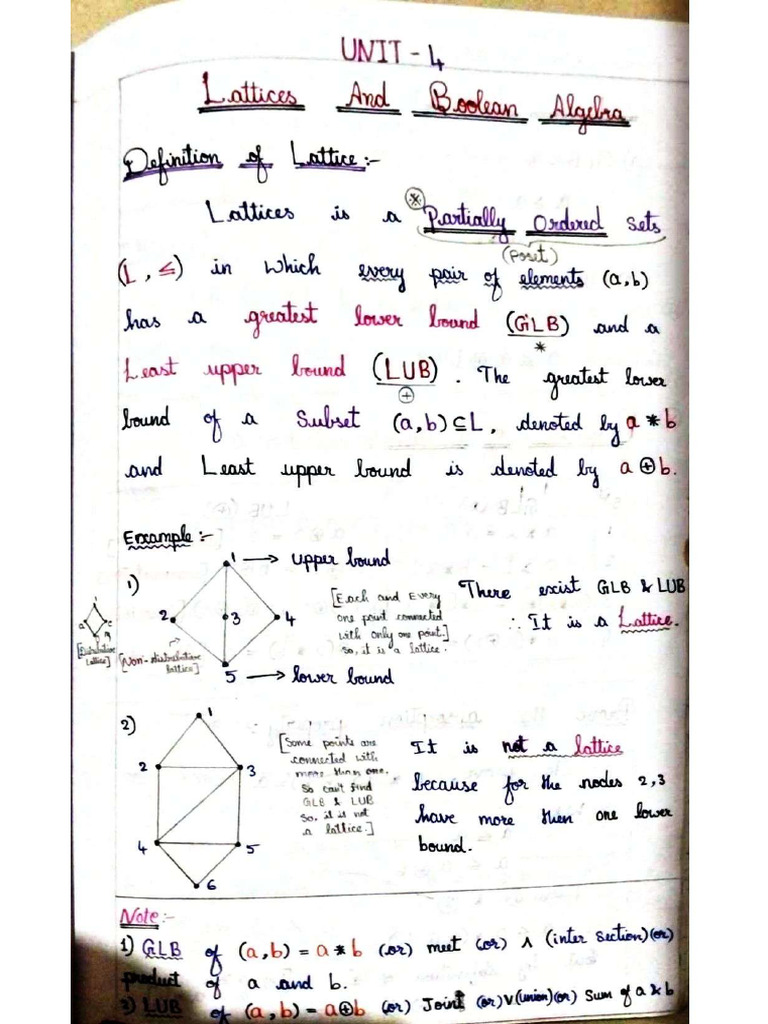 UNIT - 4
Lattices And Boolean Algebra
Definition of Lattice:-
Lattices is a Partially Ordered Sets
(poset)
(L, ≤) in which every pair of elements (a,b)
has a greatest lower bound (GLB) and a
*
Least upper bound (LUB). The greatest lower
⊕
bound of a Subset (a,b)⊆L, denoted by a * b
and Least upper bound is denoted by a ⊕ b.
Example:-
1)
1 → upper bound
2 3 4
5 → lower bound
[Distributive
lattice]
[Non-distributive
lattice]
[Each and Every
one point connected
with only one point.]
So, it is a lattice.
There exist GLB & LUB
∴ It is a Lattice.
2)
1
2 3
4 5
6
[Some points are
connected with
more than one.
So can't find
GLB & LUB
So, it is not
a lattice.]
It is not a lattice
because for the nodes 2,3
have more then one lower
bound.
Note:-
1) GLB of (a,b) = a * b (or) meet (or) ∧ (inter section)(or)
product of a and b.
2) LUB of (a,b) = a⊕b (or) Joint (or) ∨(union)(or) Sum of a & b